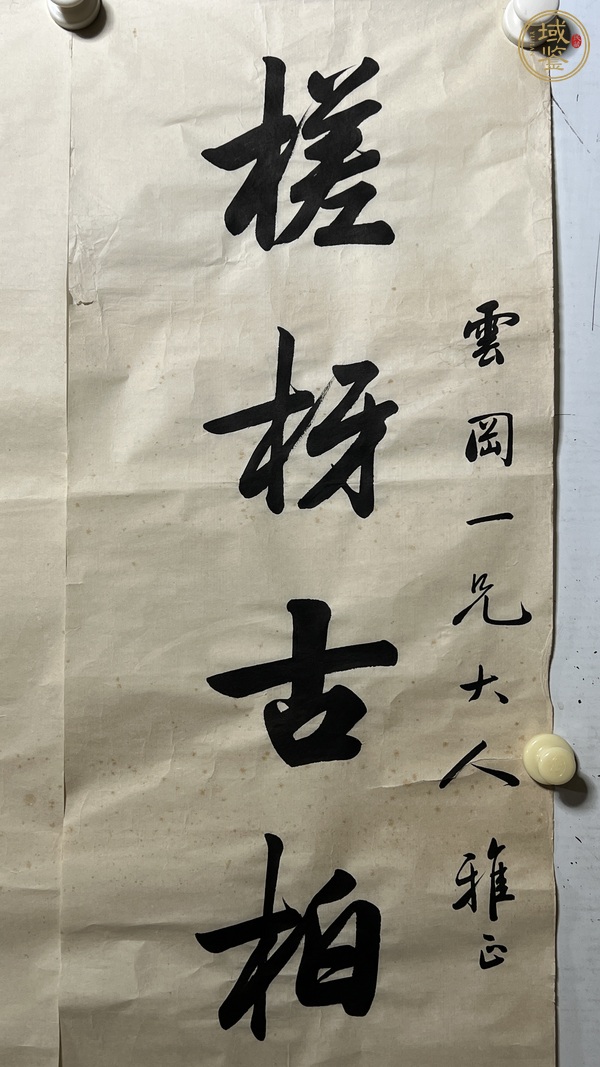 雲岡一兄大人雅正
槎枒古柏
域鉴